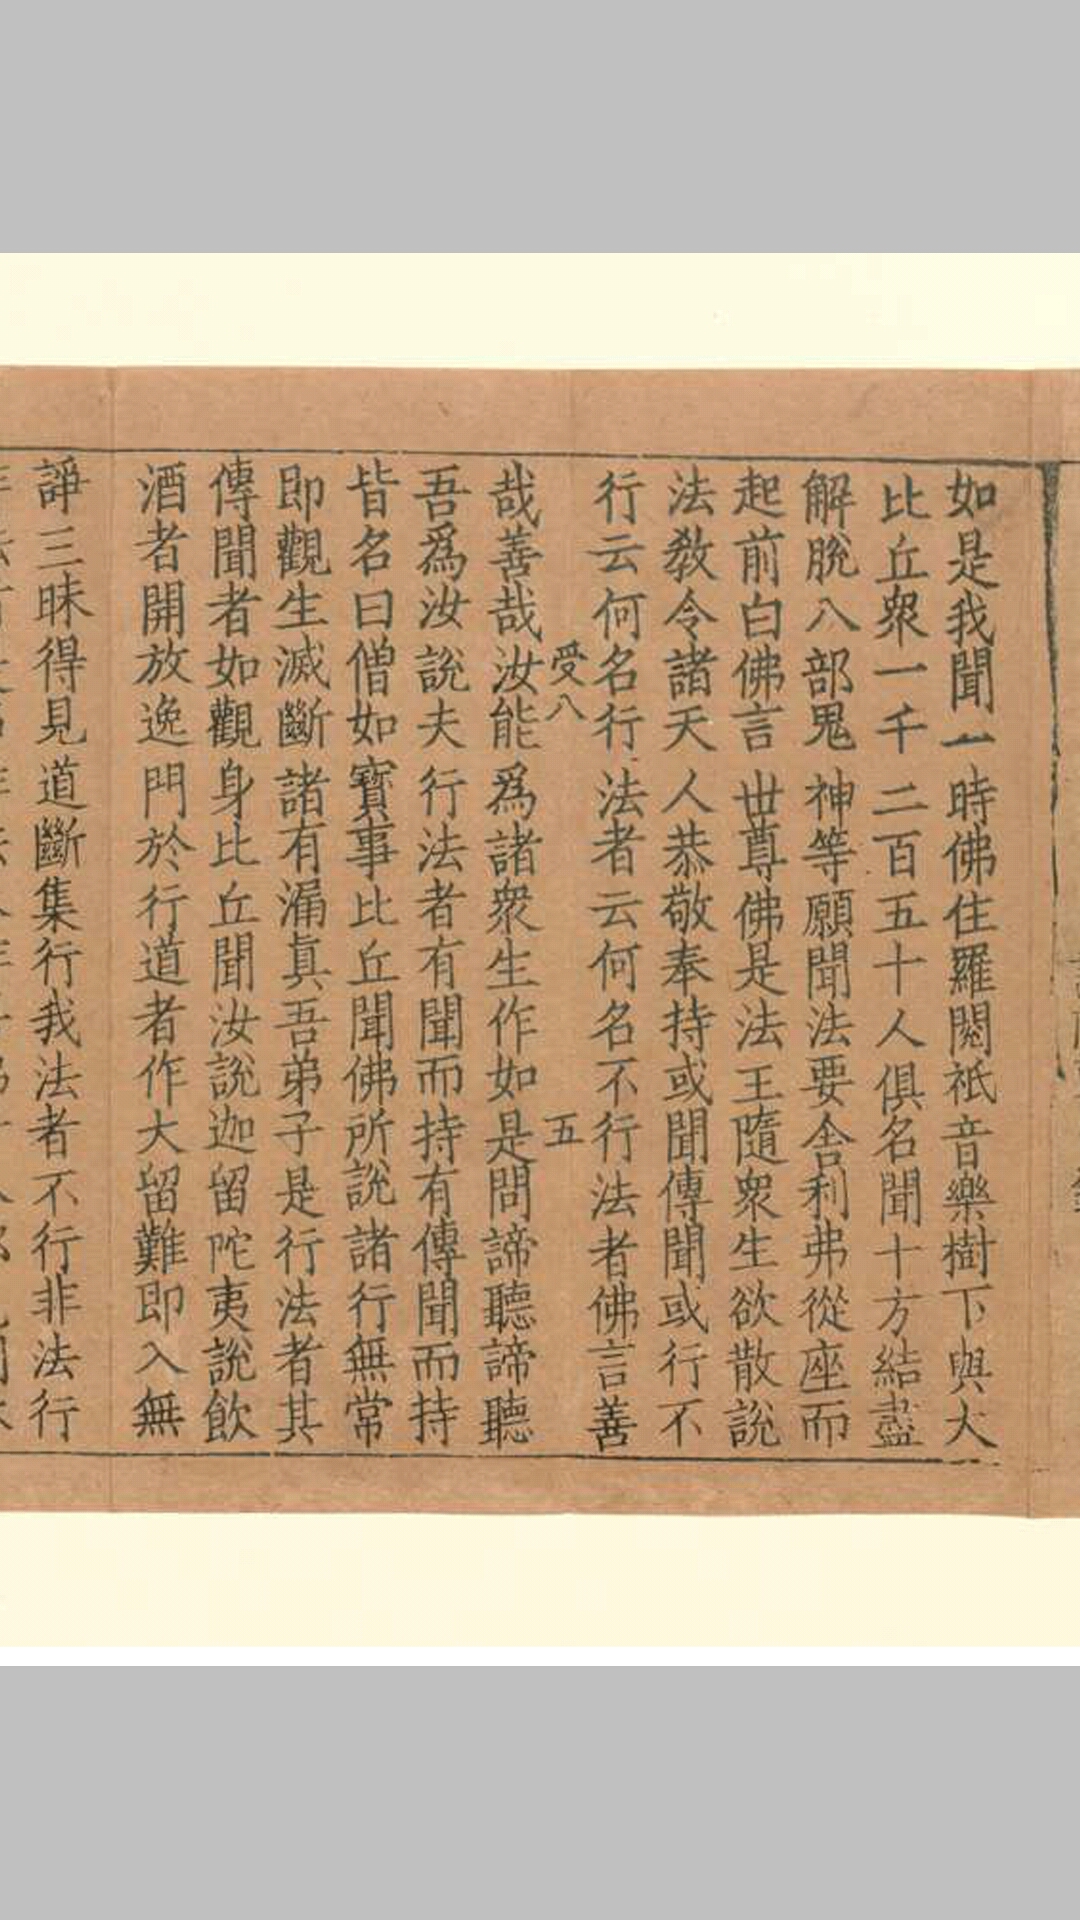 如是我聞一時佛住羅閱祇音樂樹下與大
比丘衆一千二百五十人俱名聞十方結盡
解脫八部鬼神等願聞法要舍利弗從座而
起前白佛言世尊佛是法王隨衆生欲散說
法教令諸天人恭敬奉持或聞傳聞或行不
行云何名行法者云何名不行法者佛言善
受八 五
哉善哉汝能為諸衆生作如是問諦聽諦聽
吾為汝說夫行法者有聞而持有傳聞而持
皆名曰僧如寶事比丘聞佛所說諸行無常
即觀生滅斷諸有漏真吾弟子是行法者其
傳聞者如觀身比丘聞汝說迦留陀夷說飲
酒者開放逸門於行道者作大留難即入無
諍三昧得見道斷集行我法者不行非法行